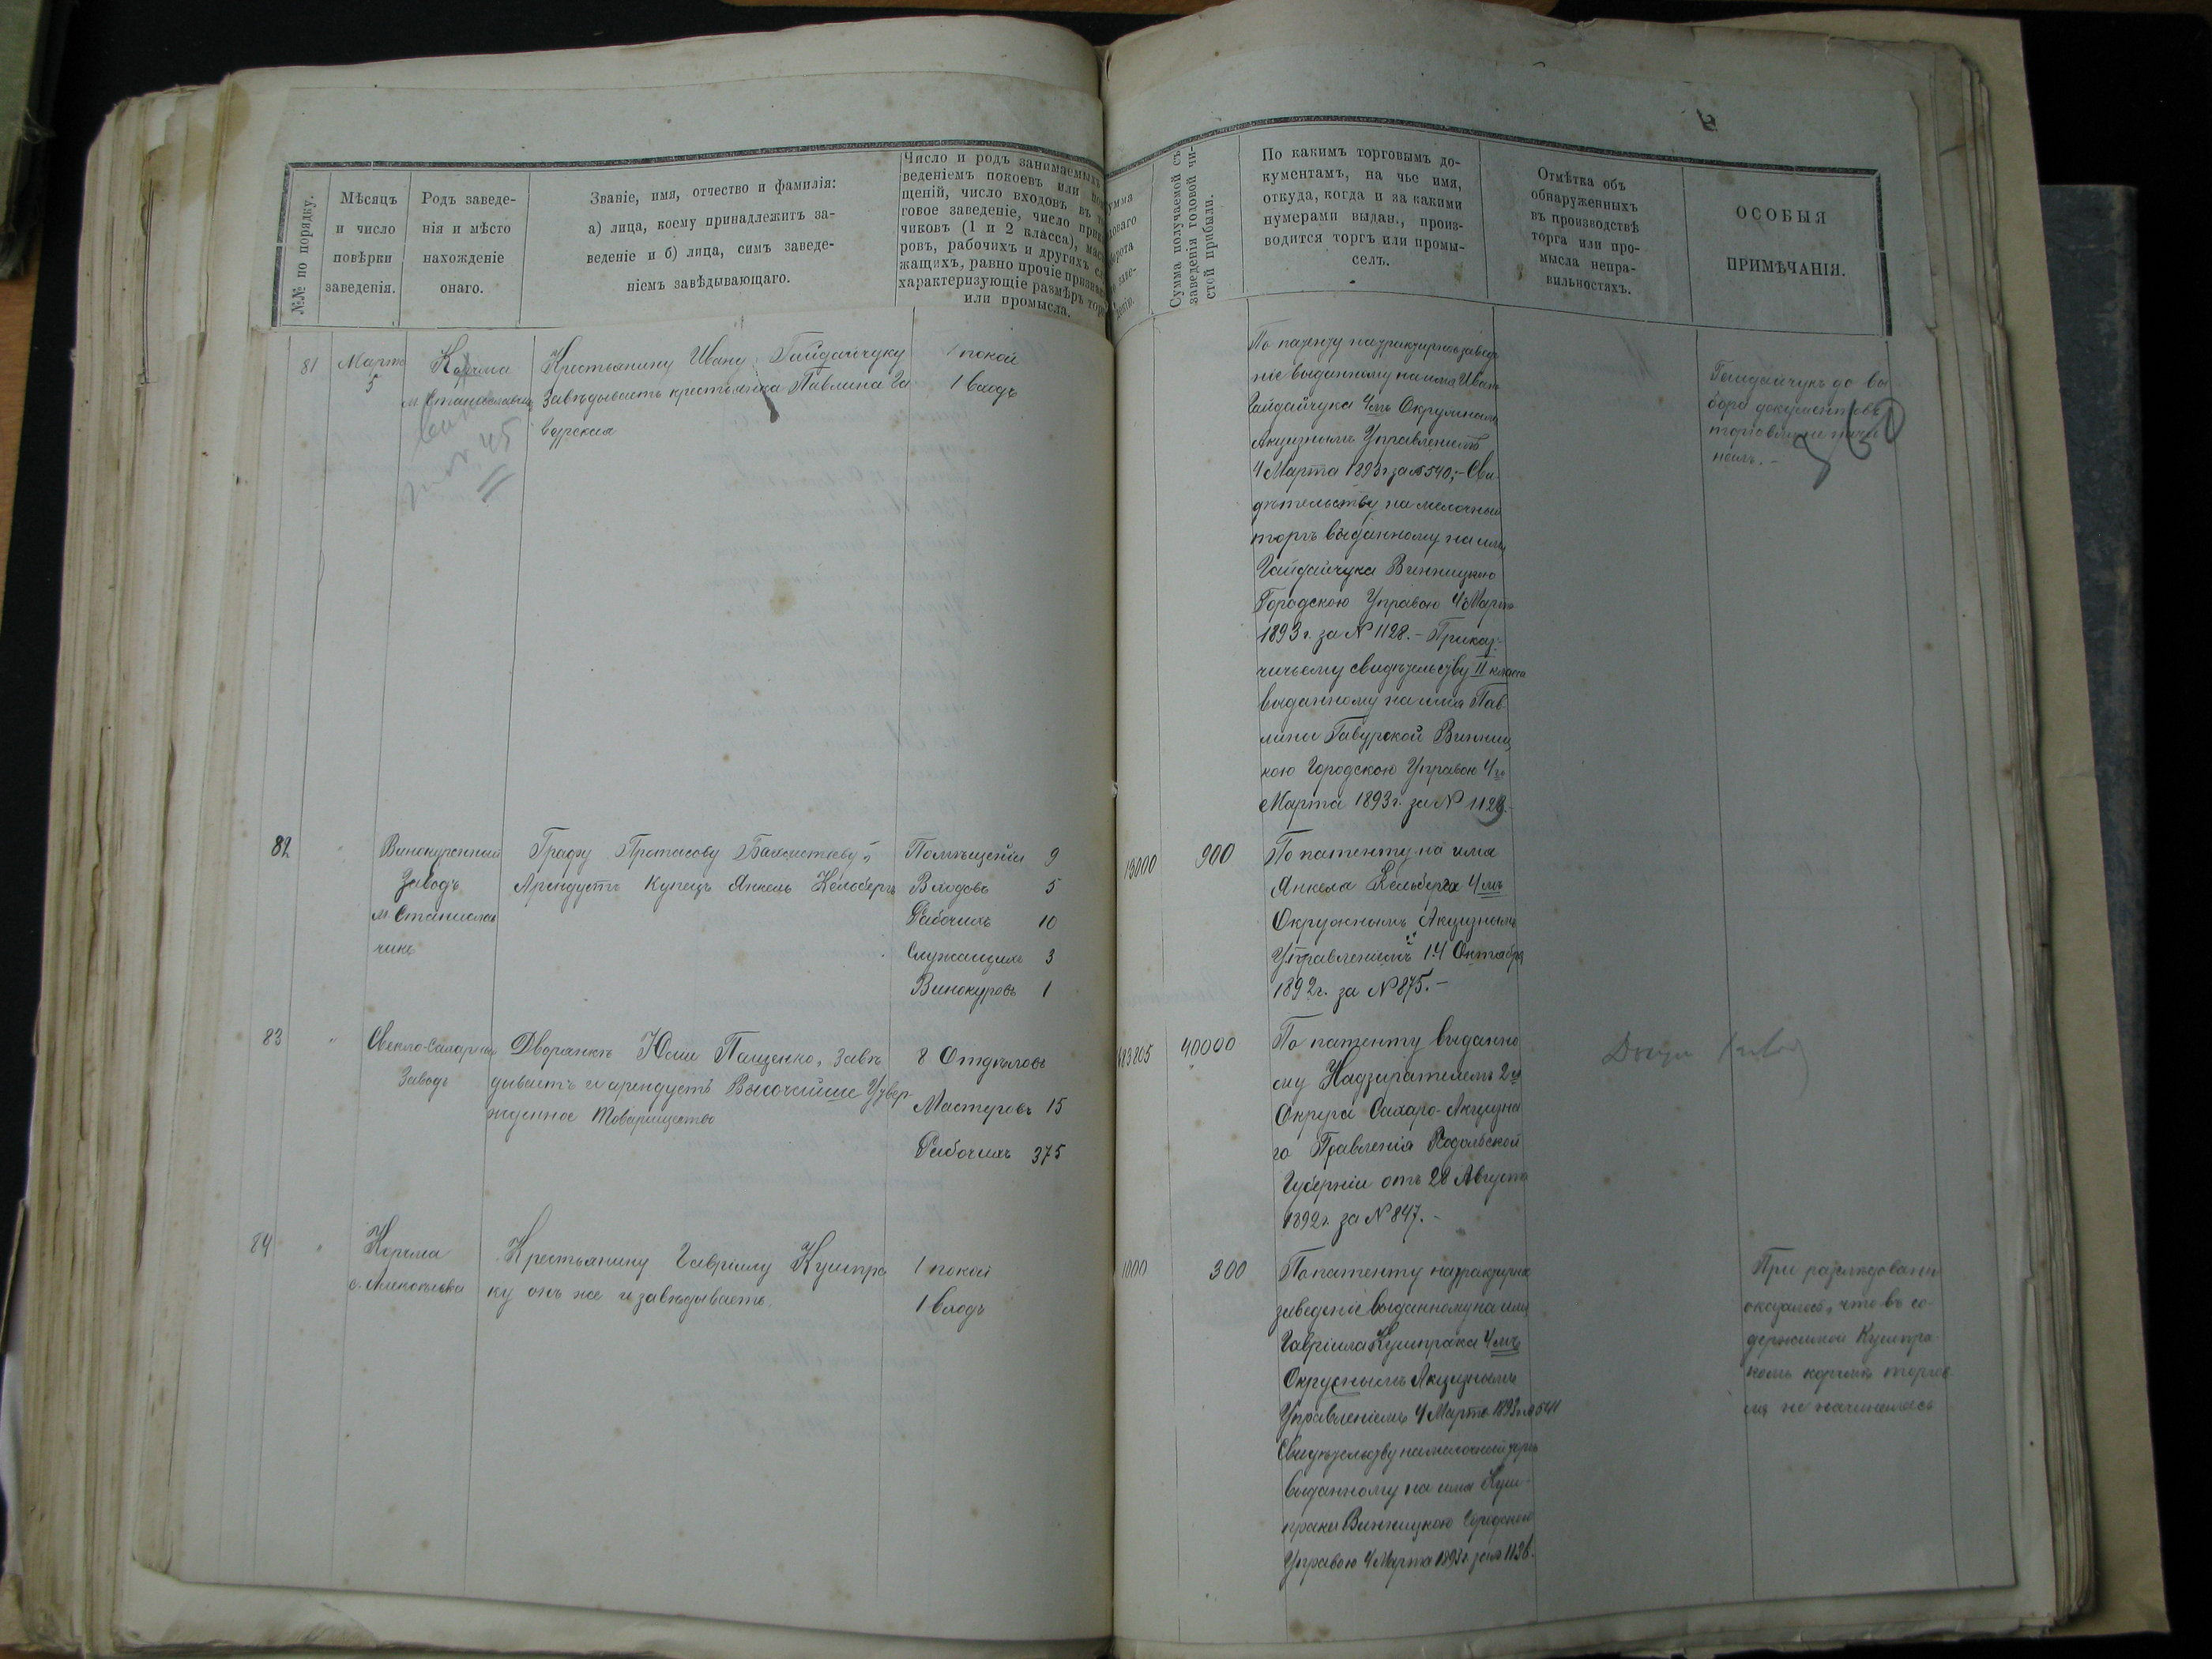 №№ по порядку.
Мѣсяцъ
и число
повѣрки
заведенія.
Родъ заведе-
нія и мѣсто
нахожденіе
онаго.
Званіе, имя, отчество и фамилія:
а) лица, коему принадлежитъ за-
веденіе и б) лица, симъ заведе-
ніемъ завѣдывающаго.
Число и родъ занимаемыхъ
веденіемъ покоевъ или
щеній, число входовъ въ
говое заведеніе, число
чиковъ (1 и 2 класса),
ровъ, рабочихъ и другихъ
жащихъ, равно прочіе
характеризующіе размѣръ
или промысла.
Сумма получаемой съ
заведенія годовой чи-
стой прибыли.
По какимъ торговымъ до-
кументамъ, на чье имя,
откуда, когда и за какими
нумерами выдан., произ-
водится торгъ или промы-
селъ.
Отмѣтка объ
обнаруженныхъ
въ производствѣ
торга или про-
мысла непра-
вильностяхъ.
ОСОБЫЯ
ПРИМѢЧАНІЯ.
81
Марта
5
Корчма
м. Станиславчикъ
45
Крестьянину Ивану Гайдайчуку
Завѣдываетъ крестьянка Павлина Га
вурская
1 покой
1 входъ
По патенту на трактирное заведе
ніе выданному на имя Ивана
Гайдайчука 4мъ Окружнымъ
Акцизнымъ Управленіемъ
4 Марта 1893 г за № 540; - Сви
дѣтельству на мелочный
торгъ выданному на имя
Гайдайчука Винницкою
Городскою Управою 4 Марта
1893 г. за № 1128. - Приказ-
чичьему свидѣтельству II класса
выданному на имя Пав
лины Гавурской Винниц
кою Городскою Управою 4го
Марта 1893 г. за № 1129.
Гайдайчукъ до вы
бора документовъ
торговли не начи
налъ. -
82
Винокуренный
Заводъ
м. Станислав
чикъ
Графу Протасову Бахметьеву
Арендуетъ Купецъ Янкель Кельбергъ
Помѣщеній 9
Входовъ 5
Рабочихъ 10
Служащихъ 3
Винокуровъ 1
13000
900
По патенту на имя
Янкеля Кельберга 4мъ
Окружнымъ Акцизнымъ
Управленіемъ 14 Октября
1892 г. за № 875. -
83
Свекло-Сахарный
Заводъ
Дворянкѣ Юліи Пащенко, завѣ
дываетъ и арендуетъ Высочайше Утвер
жденное Товарищество
8 Отдѣловъ
Мастеровъ 15
Рабочихъ 375
40000
По патенту выданно
му Надзирателемъ 2го
Округа Сахаро-Акцизна
го Правленія Подольской
Губерніи отъ 28 Августа
1892 г. за № 847. -
84
Корчма
с.
Крестьянину Гавріилу Кушпра
ку онъ же и завѣдываетъ.
1 покой
1 входъ
1000
300
По патенту на трактирное
заведеніе выданному на имя
Гавріила Кушпрака 4мъ
Окружнымъ Акцизнымъ
Управленіемъ 4 Марта 1893 г № 541
Свидѣтельству на мелочный торгъ
выданному на имя Куш-
прака Винницкою Городскою
Управою 4 Марта 1893 г. за №
При разслѣдованіи
оказалось, что въ со-
держимой Кушпра
комъ корчмѣ торгов
ля не начиналась